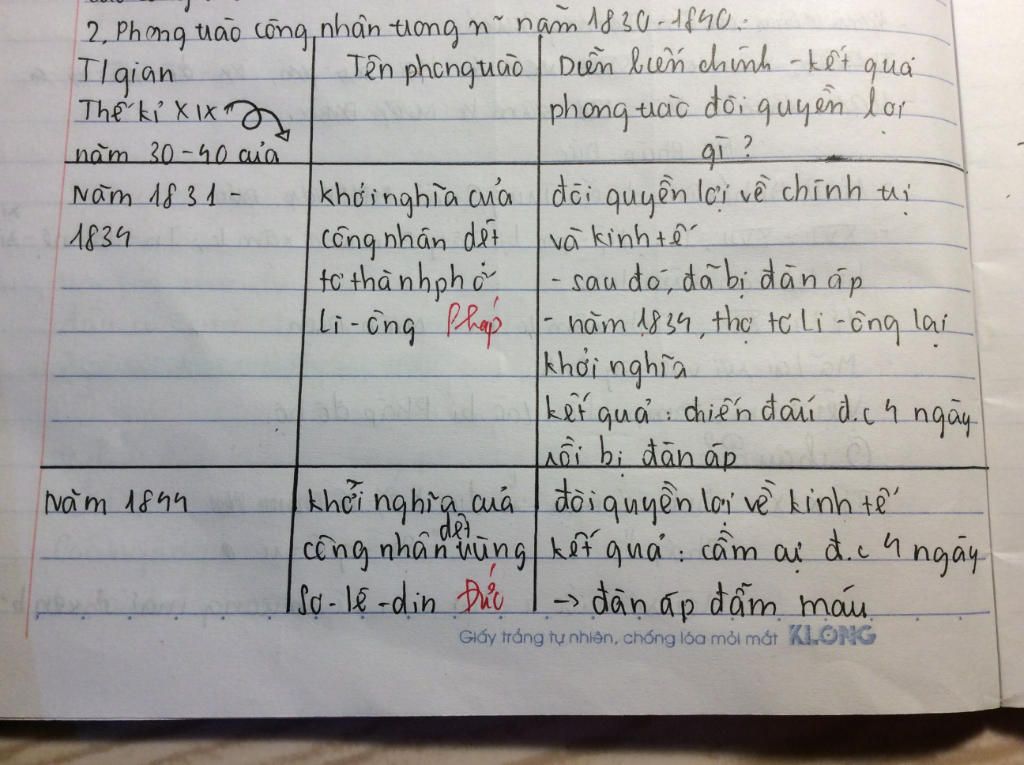 2. Phong trào công nhân trong n~ năm 1830-1840.
T/gian
Thế kỉ XIX
năm 30-40 của
Tên phong trào
Diễn biến chính - kết quả
phong trào đòi quyền lợi
gì?
Năm 1831 -
1834
khởi nghĩa của
công nhân dệt
tơ thành phố
Li-ông Pháp
đòi quyền lợi về chính trị
và kinh tế
- sau đó, đã bị đàn áp
- năm 1834, thợ tơ Li-ông lại
khởi nghĩa
kết quả: chiến đấu đ.c 4 ngày
rồi bị đàn áp
Năm 1844
khởi nghĩa của
công nhân dệt vùng
Sơ-lê-din Đức
đòi quyền lợi về kinh tế
kết quả: cầm cự đ.c 4 ngày
-> đàn áp đẫm máu
Giấy trắng tự nhiên, chống lóa mỏi mắt KLONG